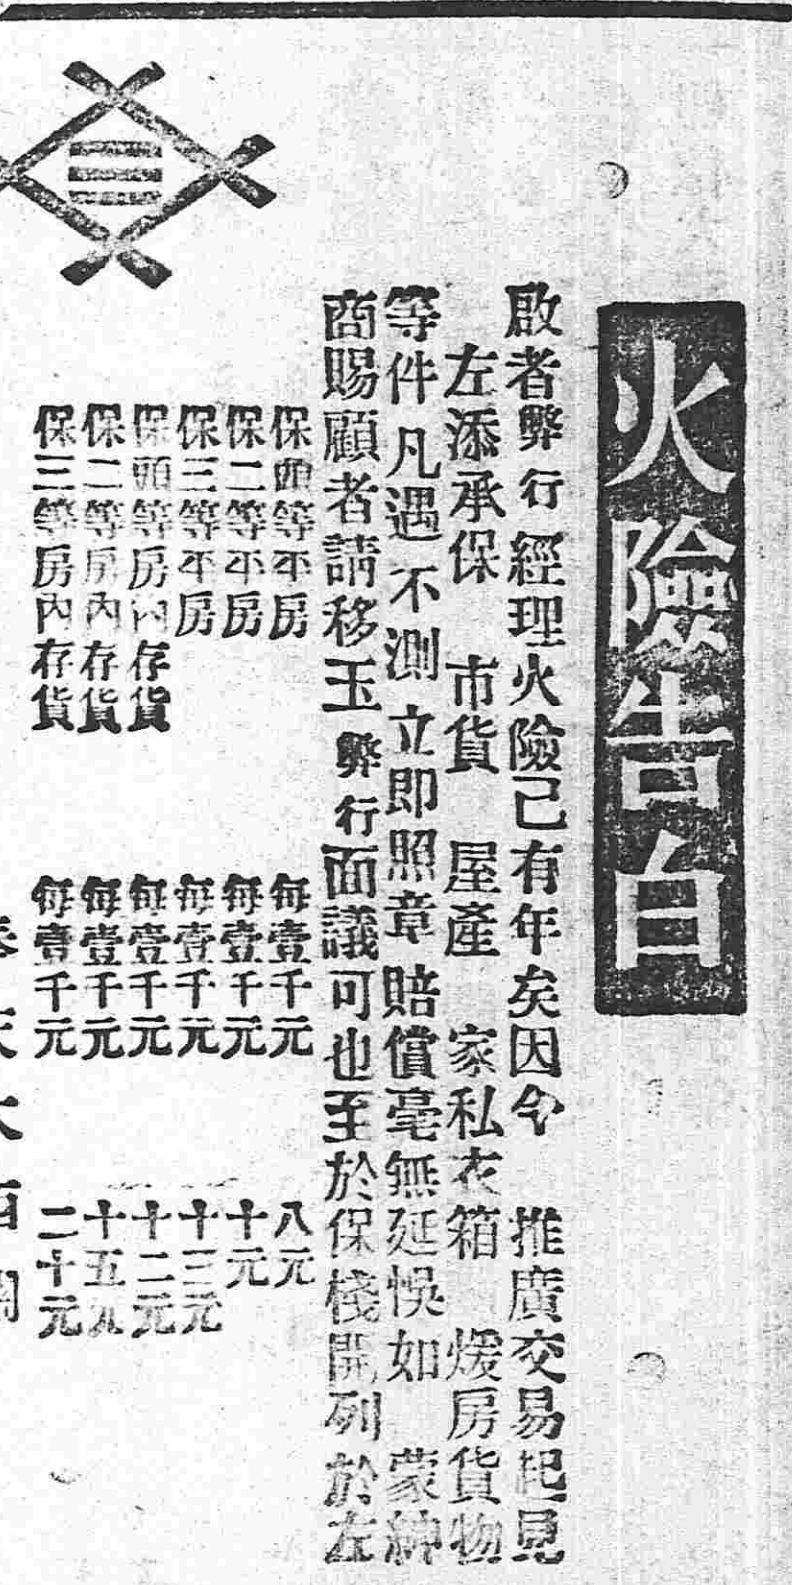 火險告白
啟者弊行經理火險已有年矣因今 推廣交易起見
左添承保 市貨 屋產 家私衣箱 煖房貨物
等件凡遇不測立即照章賠償毫無延悞如 蒙紳
商賜顧者請移玉弊行面議可也至於保棧開列於左
保頭等平房 每壹千元 八元
保二等平房 每壹千元 十元
保三等平房 每壹千元 十三元
保頭等房內存貨 每壹千元 十二元
保二等房內存貨 每壹千元 十五元
保三等房內存貨 每壹千元 二十元